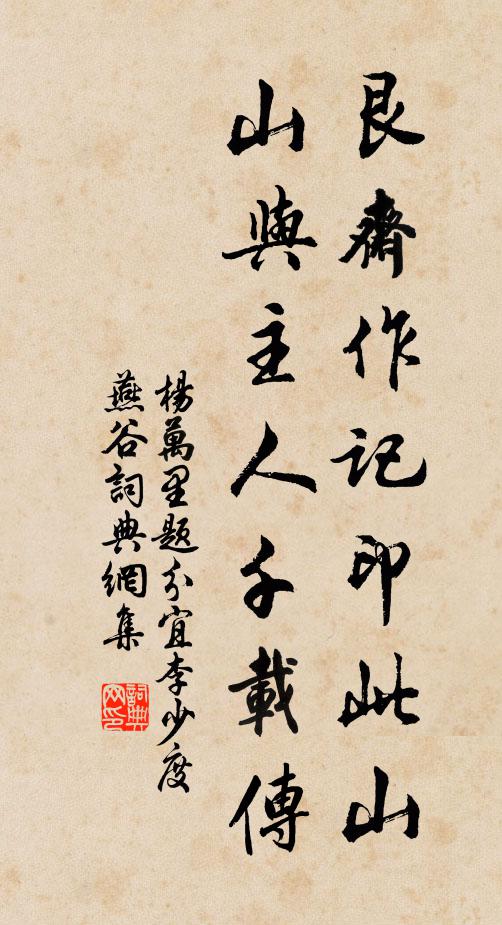 艮齋作記印此山
山與主人千載傳
楊萬里題分宜李少度
燕谷詞典網集
詞典网印